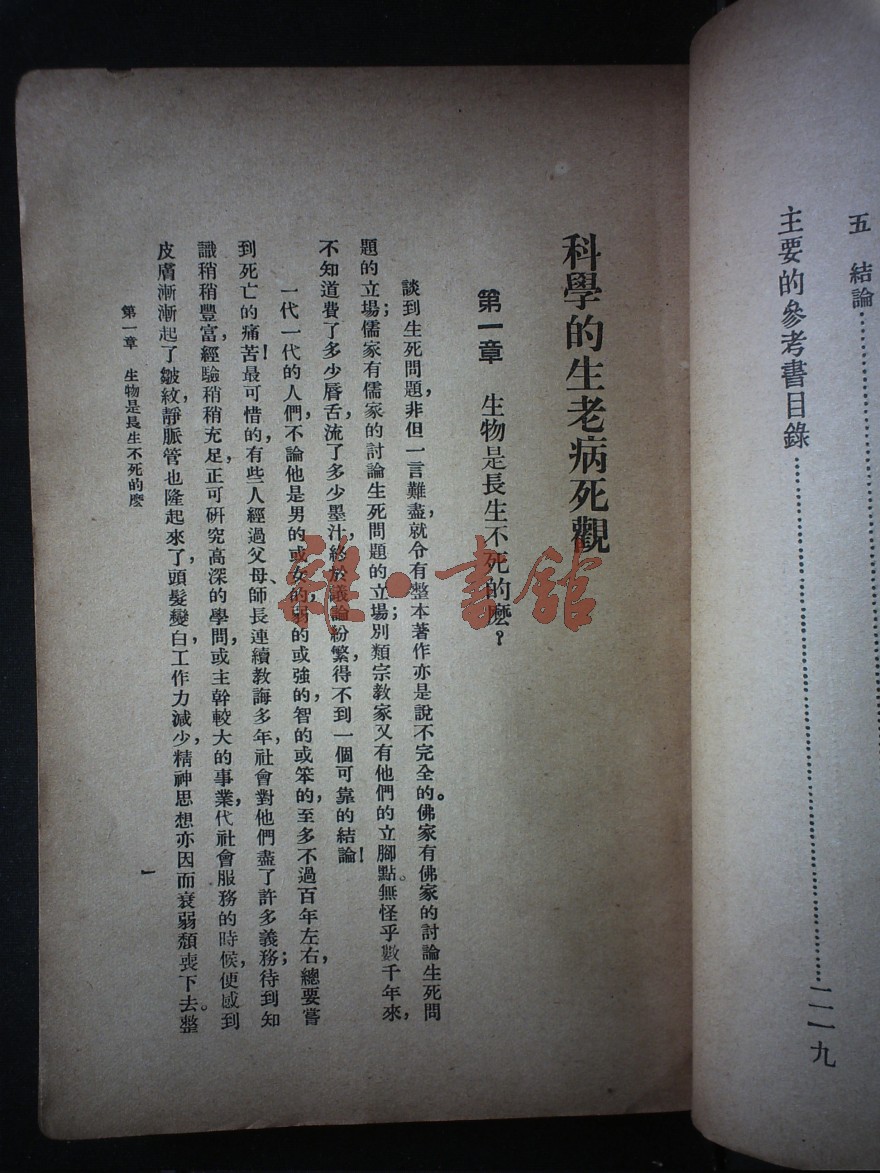 五　結論……………………
主要的參考書目錄……………………二一九
科學的生老病死觀
第一章　生物是長生不死的麽？
談到生死問題，非但一言難盡，就令有整本著作亦是說不完全的。佛家有佛家的討論生死問
題的立場；儒家有儒家的討論生死問題的立場；別類宗教家又有他們的立腳點。無怪乎數千年來，
不知道費了多少唇舌，流了多少墨汁，終於議論紛繁，得不到一個可靠的結論！
一代一代的人們，不論他是男的或女的，弱的或強的，智的或笨的，至多不過百年左右，總要嘗
到死亡的痛苦！最可惜的，有些人經過父母、師長連續教誨多年，社會對他們盡了許多義務；待到知
識稍稍豐富，經驗稍稍充足，正可研究高深的學問，或主幹較大的事業，代社會服務的時候，便感到
皮膚漸漸起了皺紋，靜脈管也隆起來了，頭髮變白，工作力減少，精神思想亦因而衰弱頹喪下去。整
第一章　生物是長生不死的麽
一
雜·書館